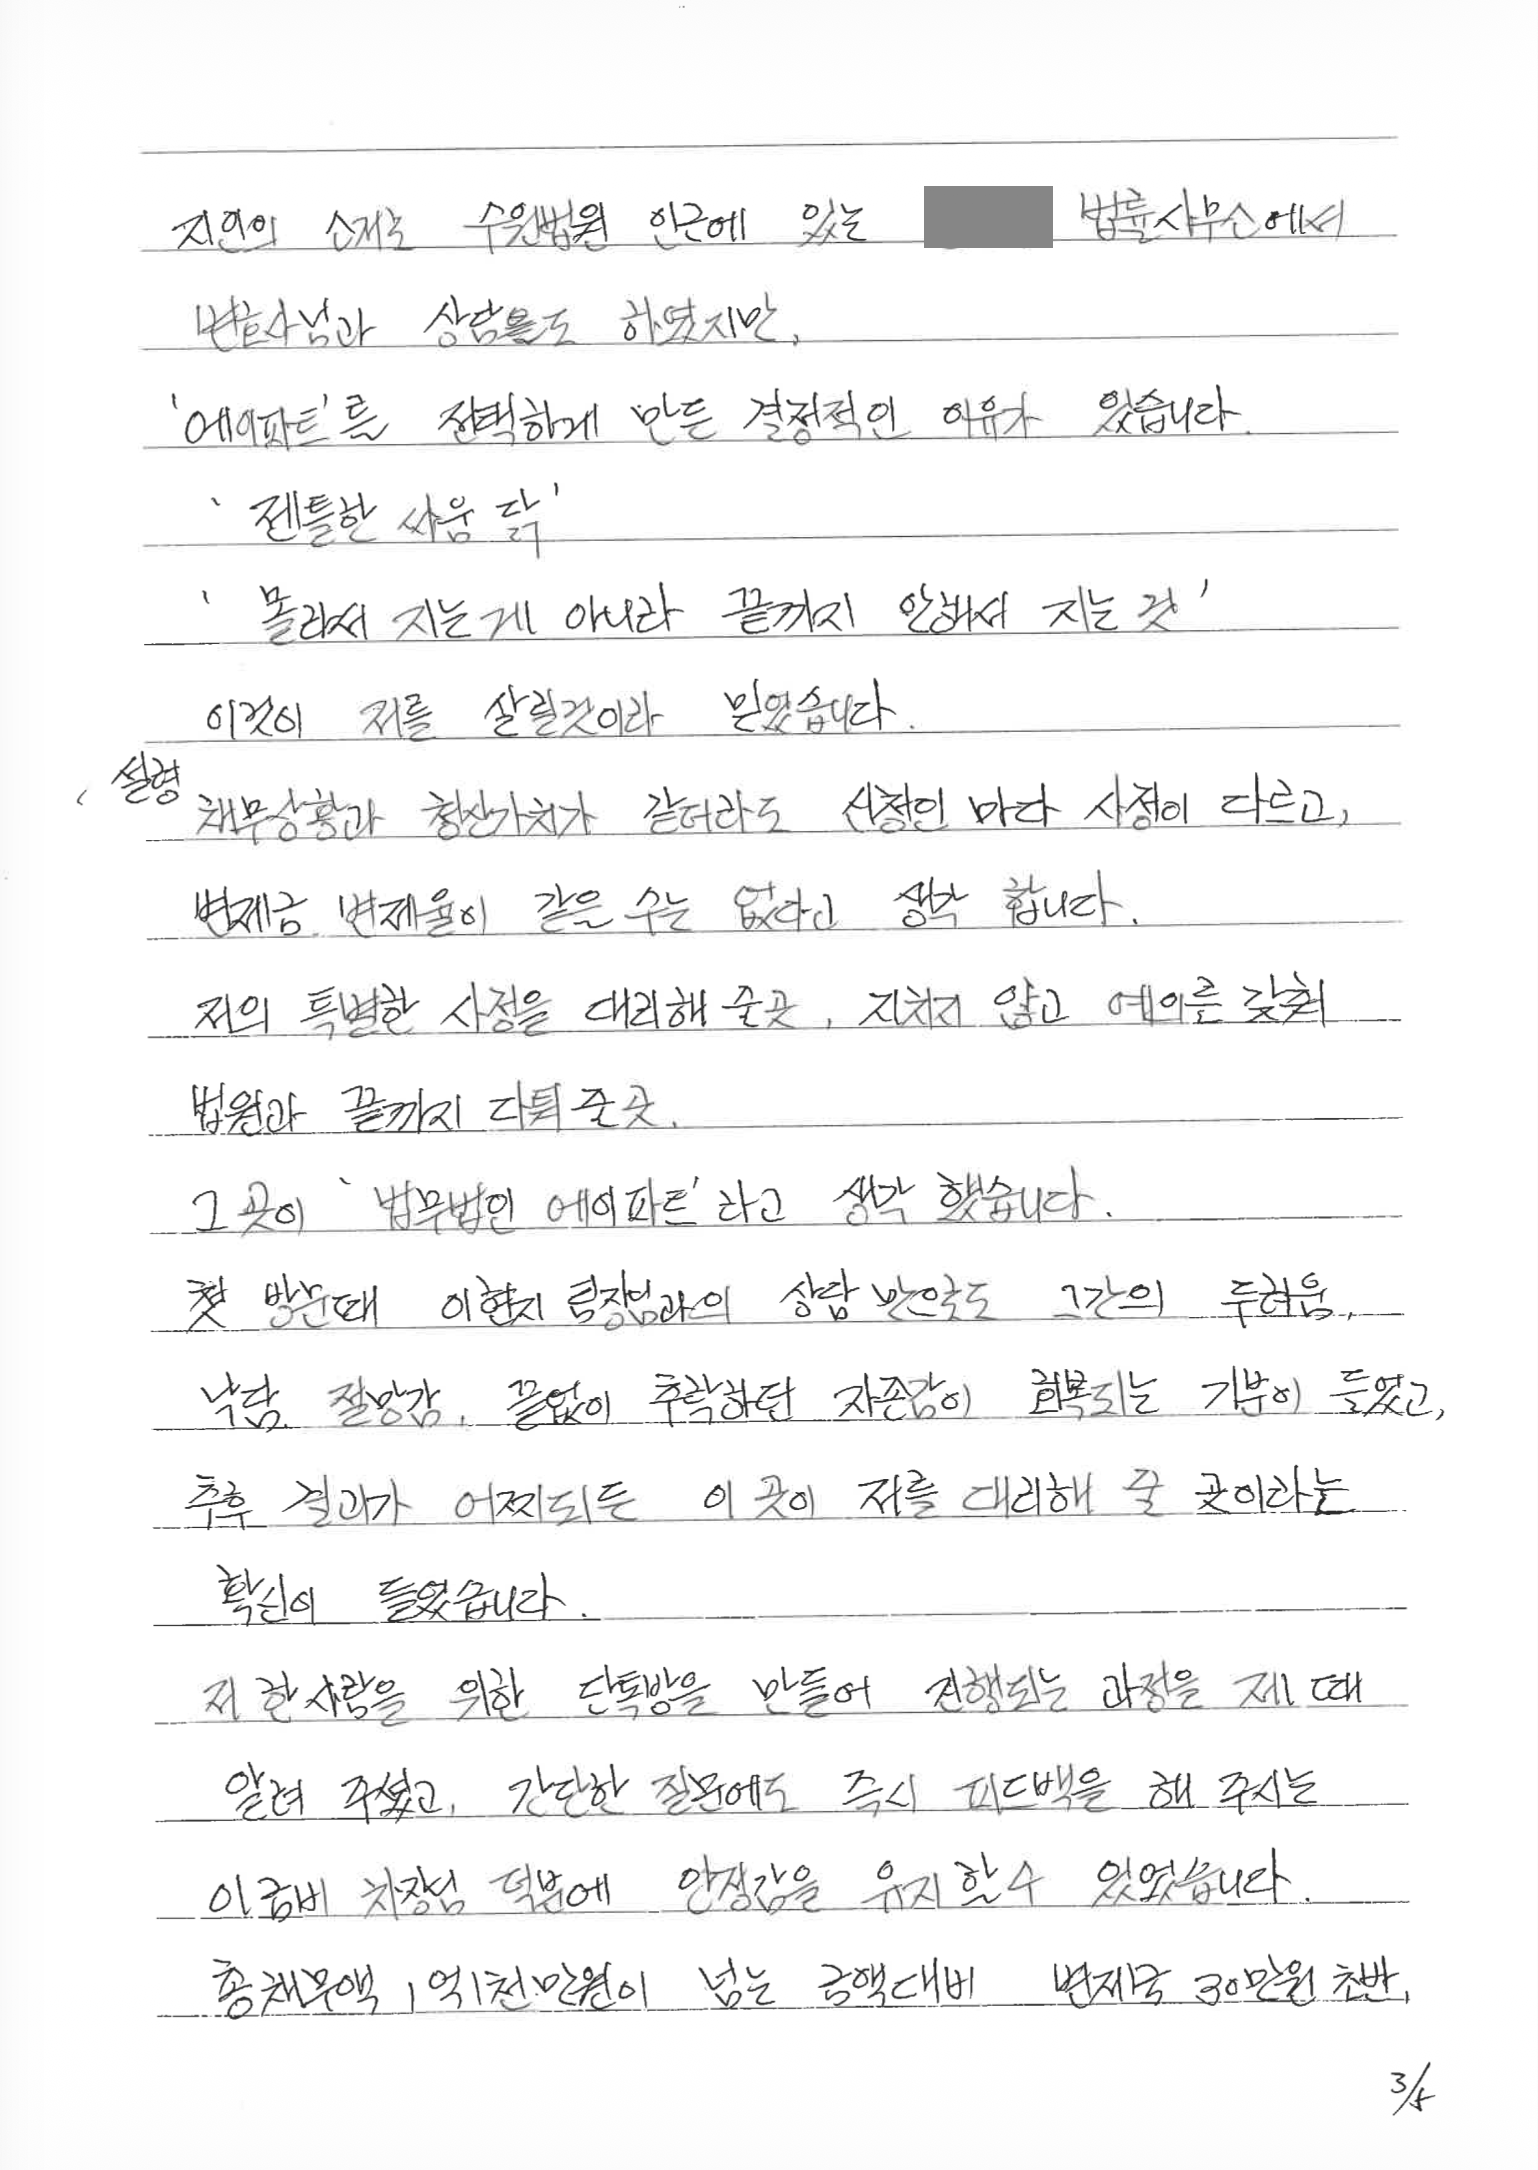 지인의 소개로 수원법원 인근에 있는 법률사무소에서
변호사님과 상담을도 하였지만,
'에이파트'를 선택하게 만든 결정적인 이유가 있습니다.
' 젠틀한 싸움 닭'
' 몰라서 지는게 아니라 끝까지 안해서 지는 것'
이것이 저를 살릴것이라 믿었습니다.
설령
채무상황과 청산가치가 같더라도 신청인 마다 사정이 다르고,
변제금. 변제율이 같을 수는 없다고 생각 합니다.
저의 특별한 사정을 대리해 줄곳, 지치지 않고 예의를 갖춰
법원과 끝까지 다퉈 줄 곳.
그 곳이 '법무법인 에이파트'라고 생각 했습니다.
첫 방문때 이현지 팀장님과의 상담 만으로도 그간의 두려움,
낙담, 절망감, 끝없이 추락하던 자존감이 회복되는 기분이 들었고,
추후 결과가 어찌되든 이 곳이 저를 대리해 줄 곳이라는
확신이 들었습니다.
저 한사람을 위한 단톡방을 만들어 진행되는 과정을 제 때
알려 주셨고, 간단한 질문에도 즉시 피드백을 해 주시는
이금비 차장님 덕분에 안정감을 유지할 수 있었습니다.
총채무액 1억1천만원이 넘는 금액대비 변제금 30만원 초반,
3/5